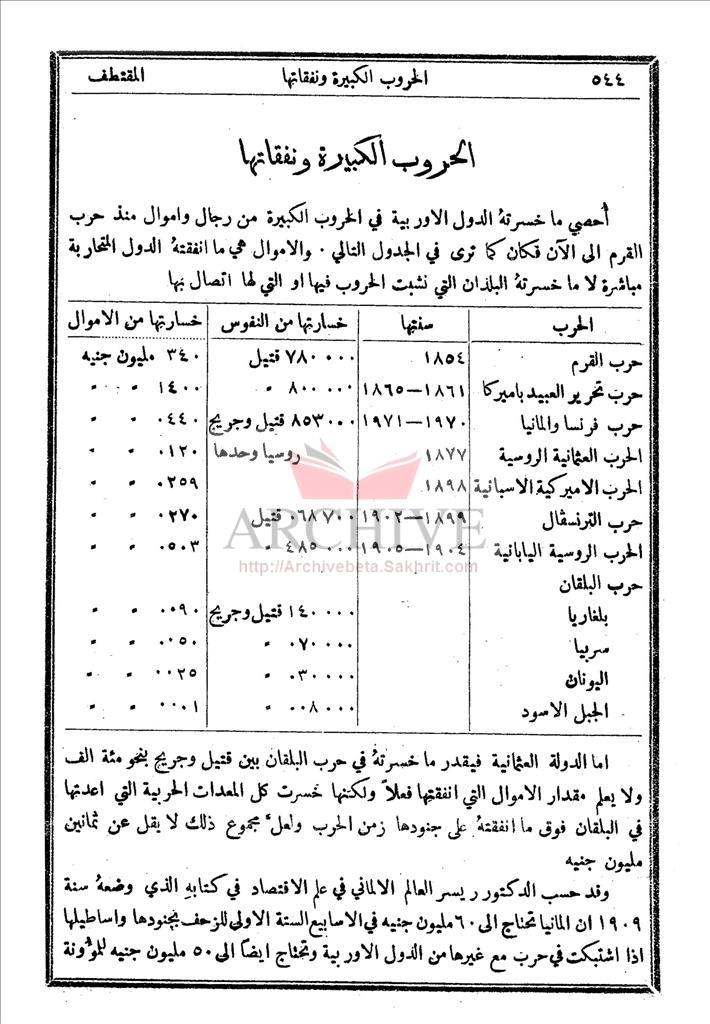 ٥٤٤ الحروب الكبيرة ونفقاتها المقتطف
الحروب الكبيرة ونفقاتها
أحصي ما خسرتهُ الدول الاوربية في الحروب الكبيرة من رجال واموال منذ حرب
القرم الى الآن فكان كما ترى في الجدول التالي . والاموال هي ما انفقتهُ الدول المتحاربة
مباشرة لا ما خسرتهُ البلدان التي نشبت الحروب فيها او التي لها اتصال بها
الحرب سنتها خسارتها من النفوس خسارتها من الاموال
حرب القرم ١٨٥٤ ٧٨٠٠٠٠ قتيل ٣٤٠ مليون جنيه
حرب تحرير العبيد باميركا ١٨٦١—١٨٦٥ ٨٠٠٠٠٠ " ١٤٠٠ " "
حرب فرنسا والمانيا ١٩٧٠—١٩٧١ ٨٥٣٠٠٠ قتيل وجريح ٠٤٤٠ " "
الحرب العثمانية الروسية ١٨٧٧ روسيا وحدها ٠١٢٠ " "
الحرب الاميركية الاسبانية ١٨٩٨ ٠٢٥٩ " "
حرب الترنسڤال ١٨٩٩—١٩٠٢ ٠٦٨٧٠٠ قتيل ٠٢٧٠ " "
الحرب الروسية اليابانية ١٩٠٤—١٩٠٥ ٤٨٥٠٠٠ " ٠٥٠٣ " "
حرب البلقان
بلغاريا ١٤٠٠٠٠ قتيل وجريح ٠٠٩٠ " "
سربيا ٠٧٠٠٠٠ " ٠٠٥٠ " "
اليونان ٠٣٠٠٠٠ " ٠٠٢٥ " "
الجبل الاسود ٠٠٨٠٠٠ " ٠٠٠١ " "
ARCHIVE
http://Archivebeta.Sakhrit.com
اما الدولة العثمانية فيقدر ما خسرتهُ في حرب البلقان بين قتيل وجريح بنحو مئة الف
ولا يعلم مقدار الاموال التي انفقتها فعلاً ولكنها خسرت كل المعدات الحربية التي اعدتها
في البلقان فوق ما انفقتهُ على جنودها زمن الحرب ولعلَّ مجموع ذلك لا يقل عن ثمانين
مليون جنيه
وقد حسب الدكتور ريسر العالم الالماني في علم الاقتصاد في كتابهِ الذي وضعهُ سنة
١٩٠٩ ان المانيا تحتاج الى ٦٠ مليون جنيه في الاسابيع الستة الاولى للزحف بجنودها واساطيلها
اذا اشتبكت في حرب مع غيرها من الدول الاوربية وتحتاج ايضاً الى ٥٠ مليون جنيه للمؤونة